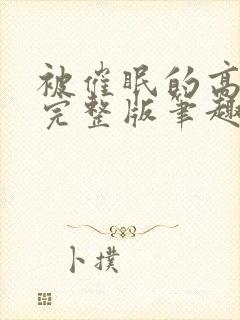 被催眠的高
完整版笔趣
卜撲